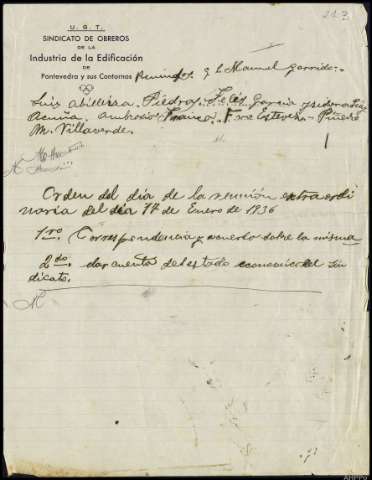 213
U. G. T.
SINDICATO DE OBREROS
DE LA
Industria de la Edificación
DE
Pontevedra y sus Contornos
Manuel Garrido
Luis Piedras, Felis Garcia
Acuña, Ambrosio Franco, Esteves - Piñeiro
M. Villaverde.
Orden del dia de la reunión extraordi
naria del dia 17 de Enero de 1936
1ro Correspondencia y acuerdo sobre la misma
2do. dar cuenta del estado economico del sin
dicato.
AHPPo